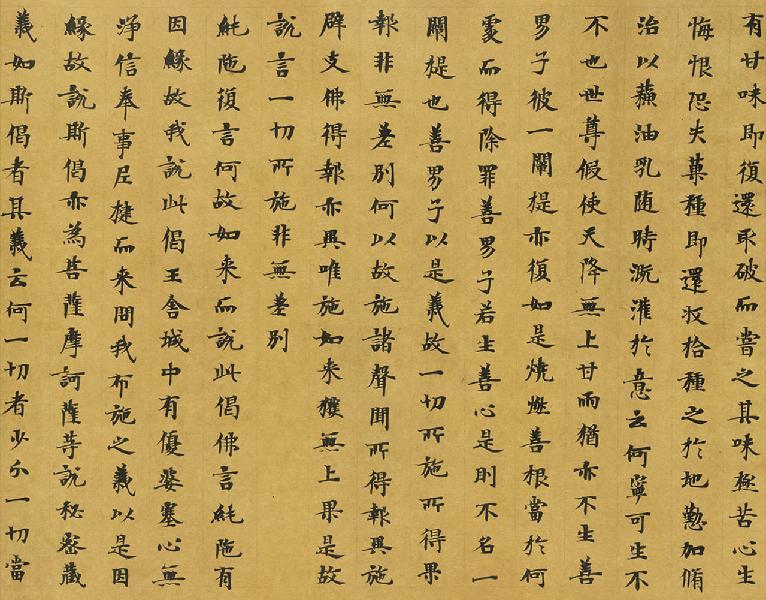 有甘味即復還取破而嘗之其味極苦心生
悔恨恐失菓種即還収拾種之於地懃加脩
治以蘓油乳随時溉灌於意云何寧可生不
不也世尊假使天降無上甘雨猶亦不生善
男子彼一闡提亦復如是燒燃善根當於何
處而得除罪善男子若生善心是則不名一
闡提也善男子以是義故一切所施所得果
報非無差別何以故施諸聲聞所得報異施
辟支佛得報亦異唯施如来獲無上果是故
說言一切所施非無差別
純陁復言何故如来而說此偈佛言純陁有
因緣故我說此偈王舍城中有優婆塞心無
淨信奉事尼揵而来問我布施之義以是因
緣故說斯偈亦為菩薩摩訶薩等說秘密藏
義如斯偈者其義云何一切者少分一切當